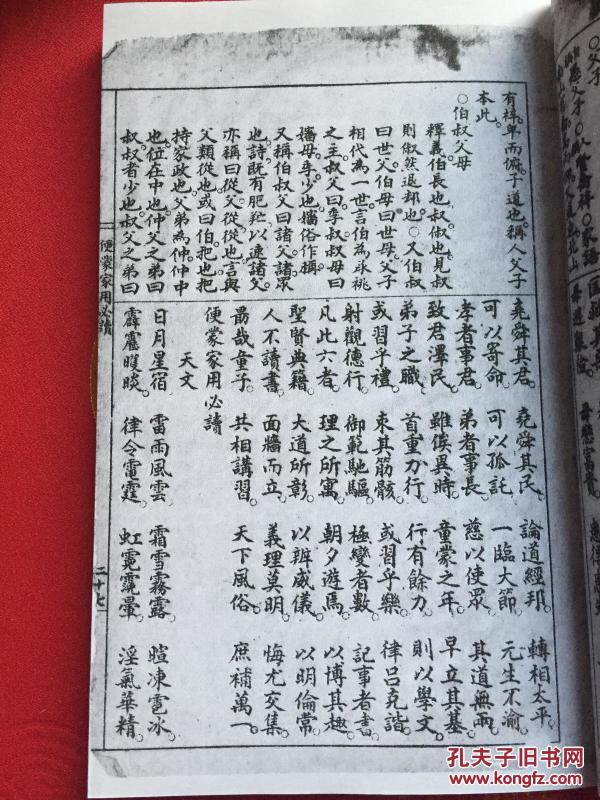 有梓卑而俯子道也稱人父子
本此
○伯叔父母
釋義伯長也叔俶也見叔
則俶然退却也○又伯叔
曰世父伯母曰世母父子
相代為一世言伯為承祧
之主叔父曰季叔叔母曰
嬸母季少也嬸俗作
又稱伯叔父曰諸父諸衆
也詩既有肥羜以速諸父
亦稱曰從父從從也言與
父類從也或曰伯把也把
持家政也父弟為仲仲中
也位在中也仲父之弟曰
叔叔者少也叔父之弟曰
堯舜其君 堯舜其民 論道經邦 轉相太平
可以寄命 可以孤託 一臨大節 元生不渝
孝者事君 弟者事長 慈以使眾 其道無兩
致君澤民 雖俟異時 童蒙之年 早立其基
弟子之職 首重力行 行有餘力 則以學文
或習乎禮 束其筋骸 或習乎樂 律呂克諧
射觀德行 御範馳驅 極變者數 記事者書
凡此六者 理之所寓 朝夕遊焉 以博其趣
聖賢典籍 大道所彰 以辨威儀 以明倫常
人不讀書 面牆而立 義理莫明 悔尤交集
勗哉童子 共相講習 天下風俗 庶補萬一
便蒙家用必讀
天文
日月星宿 雷雨風雲 霜雪霧露 暄凍雹冰
霹靂 律令雷霆 虹霓靄暈 淫氣華精
便蒙家用必讀 二十七
孔夫子旧书网
www.kongfz.com